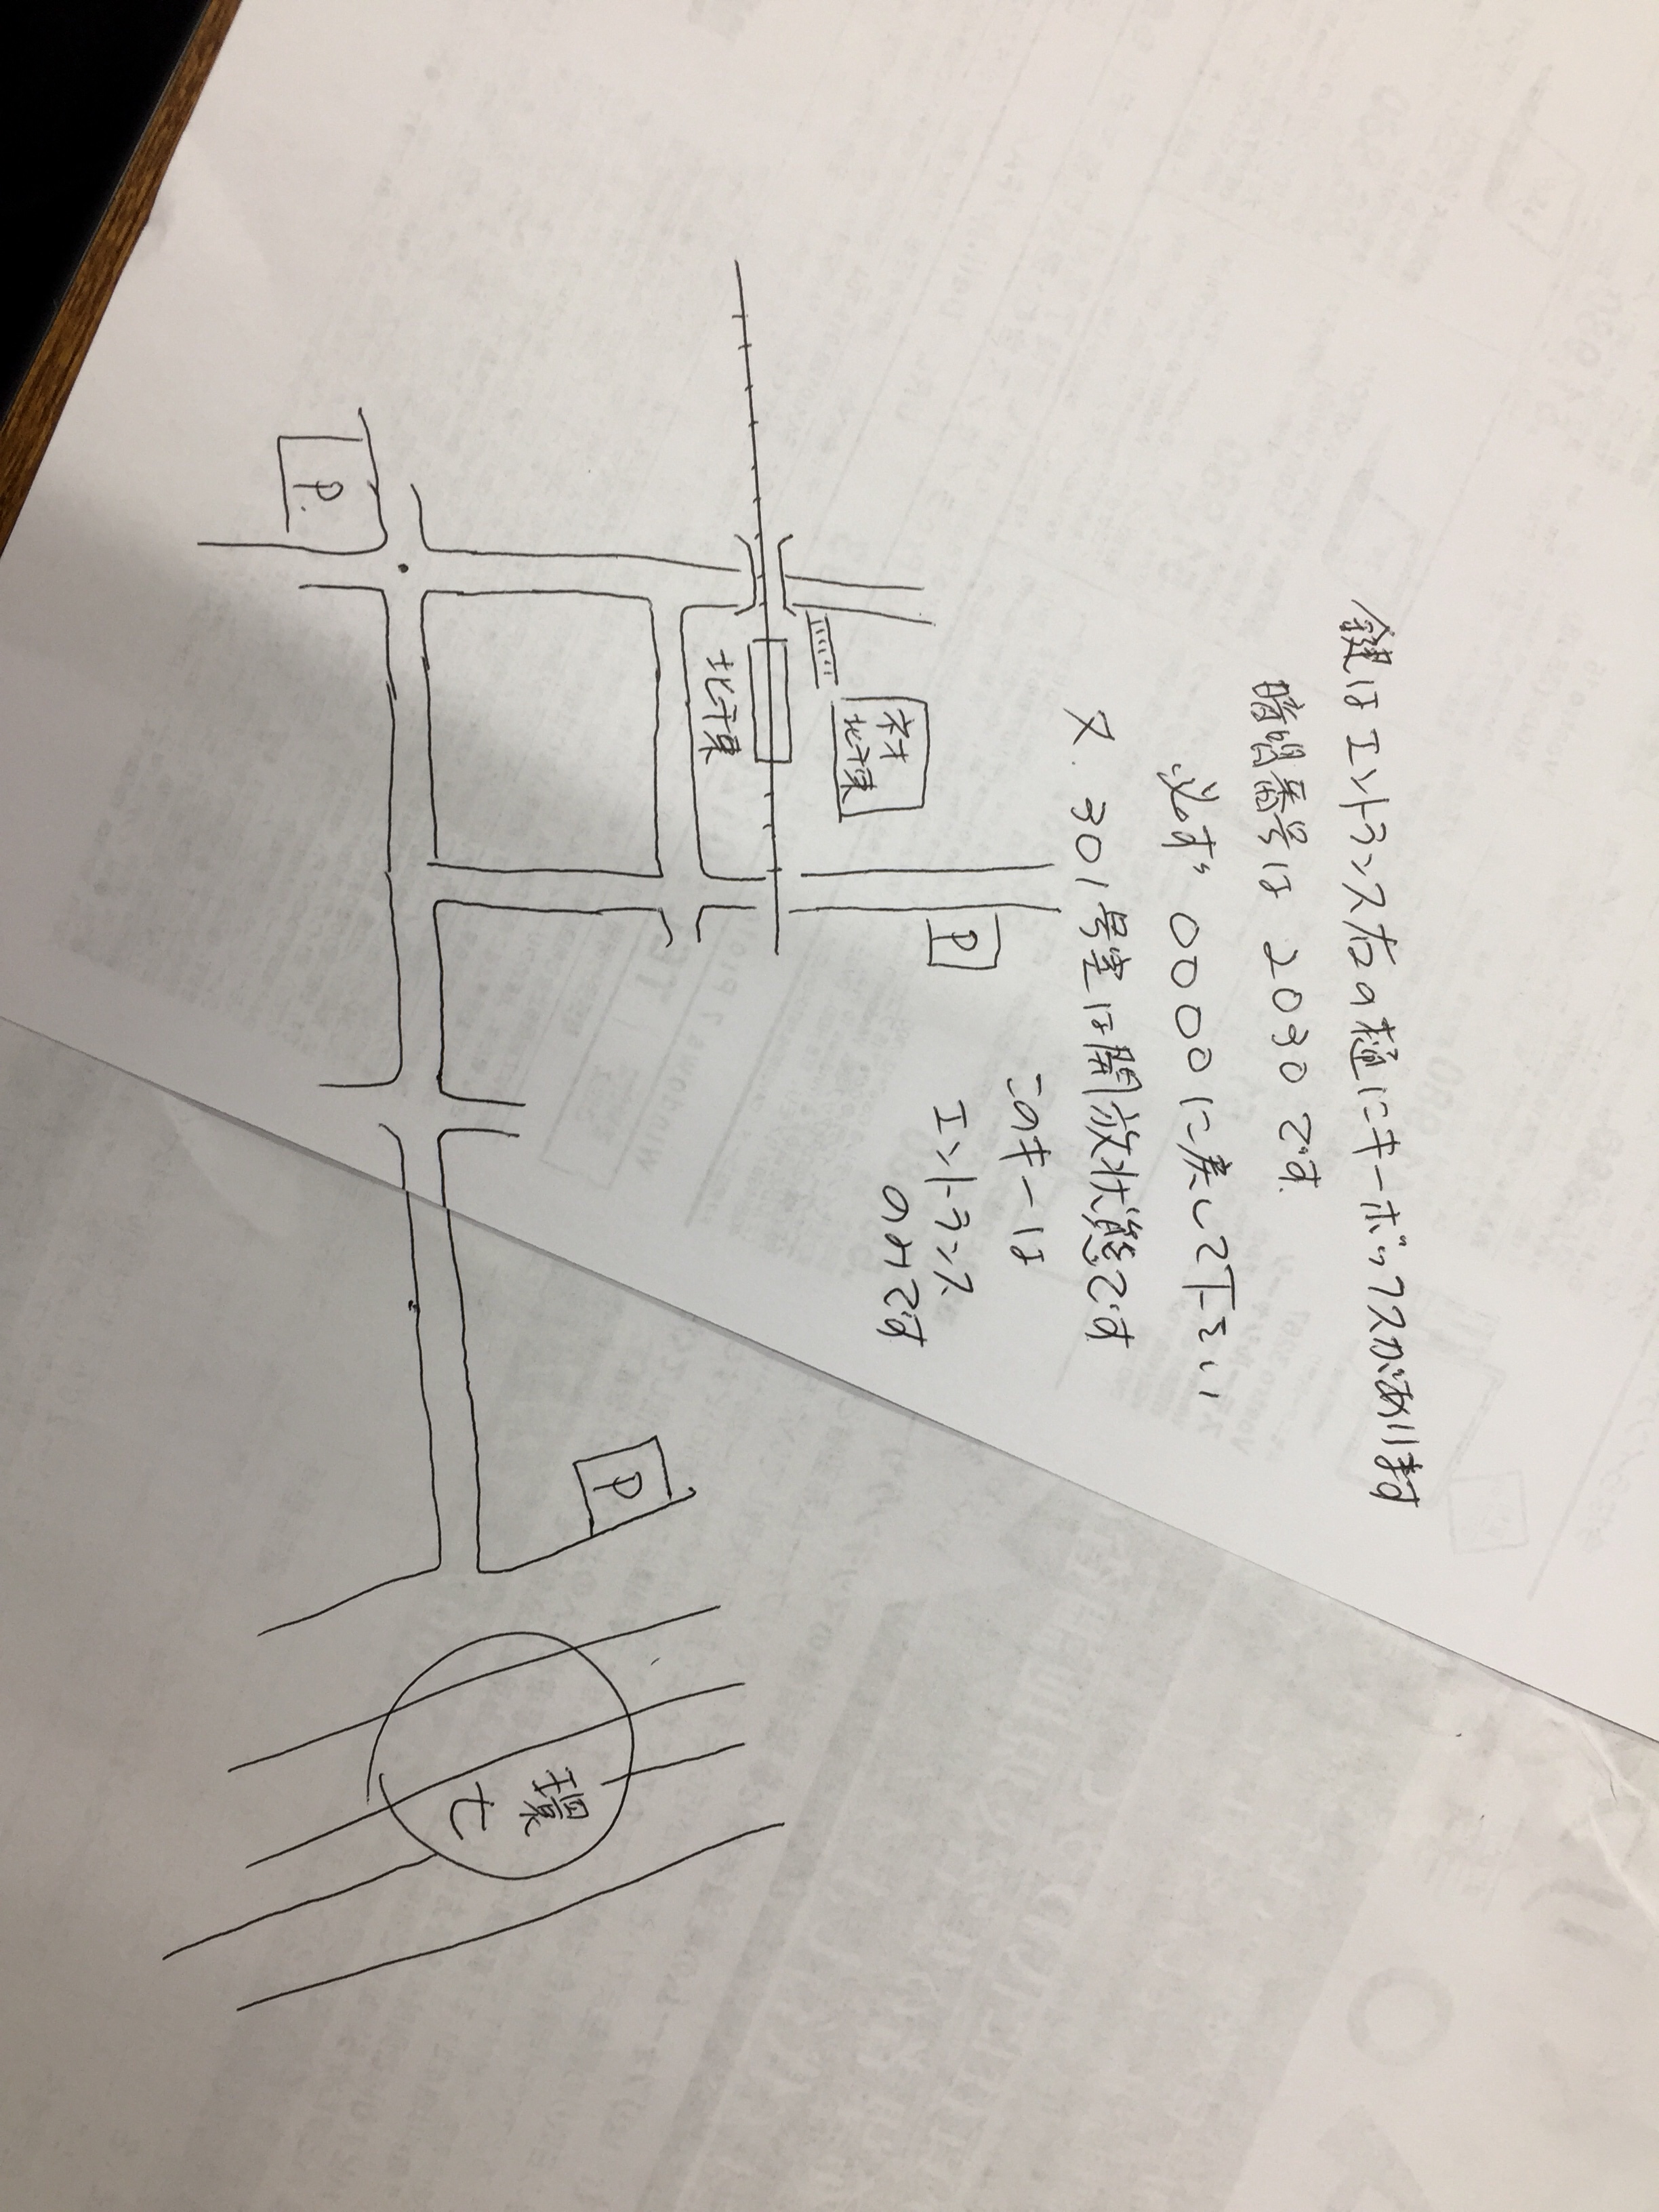 鍵はエントランス右の樋にキーボックスがあります
暗証番号は 2030 です
必ず 0000に戻して下さい
又、301号室は開放状態です
このキーは
エントランス
のみです
P
ネオ
北千束
北千束
P
P
環
七